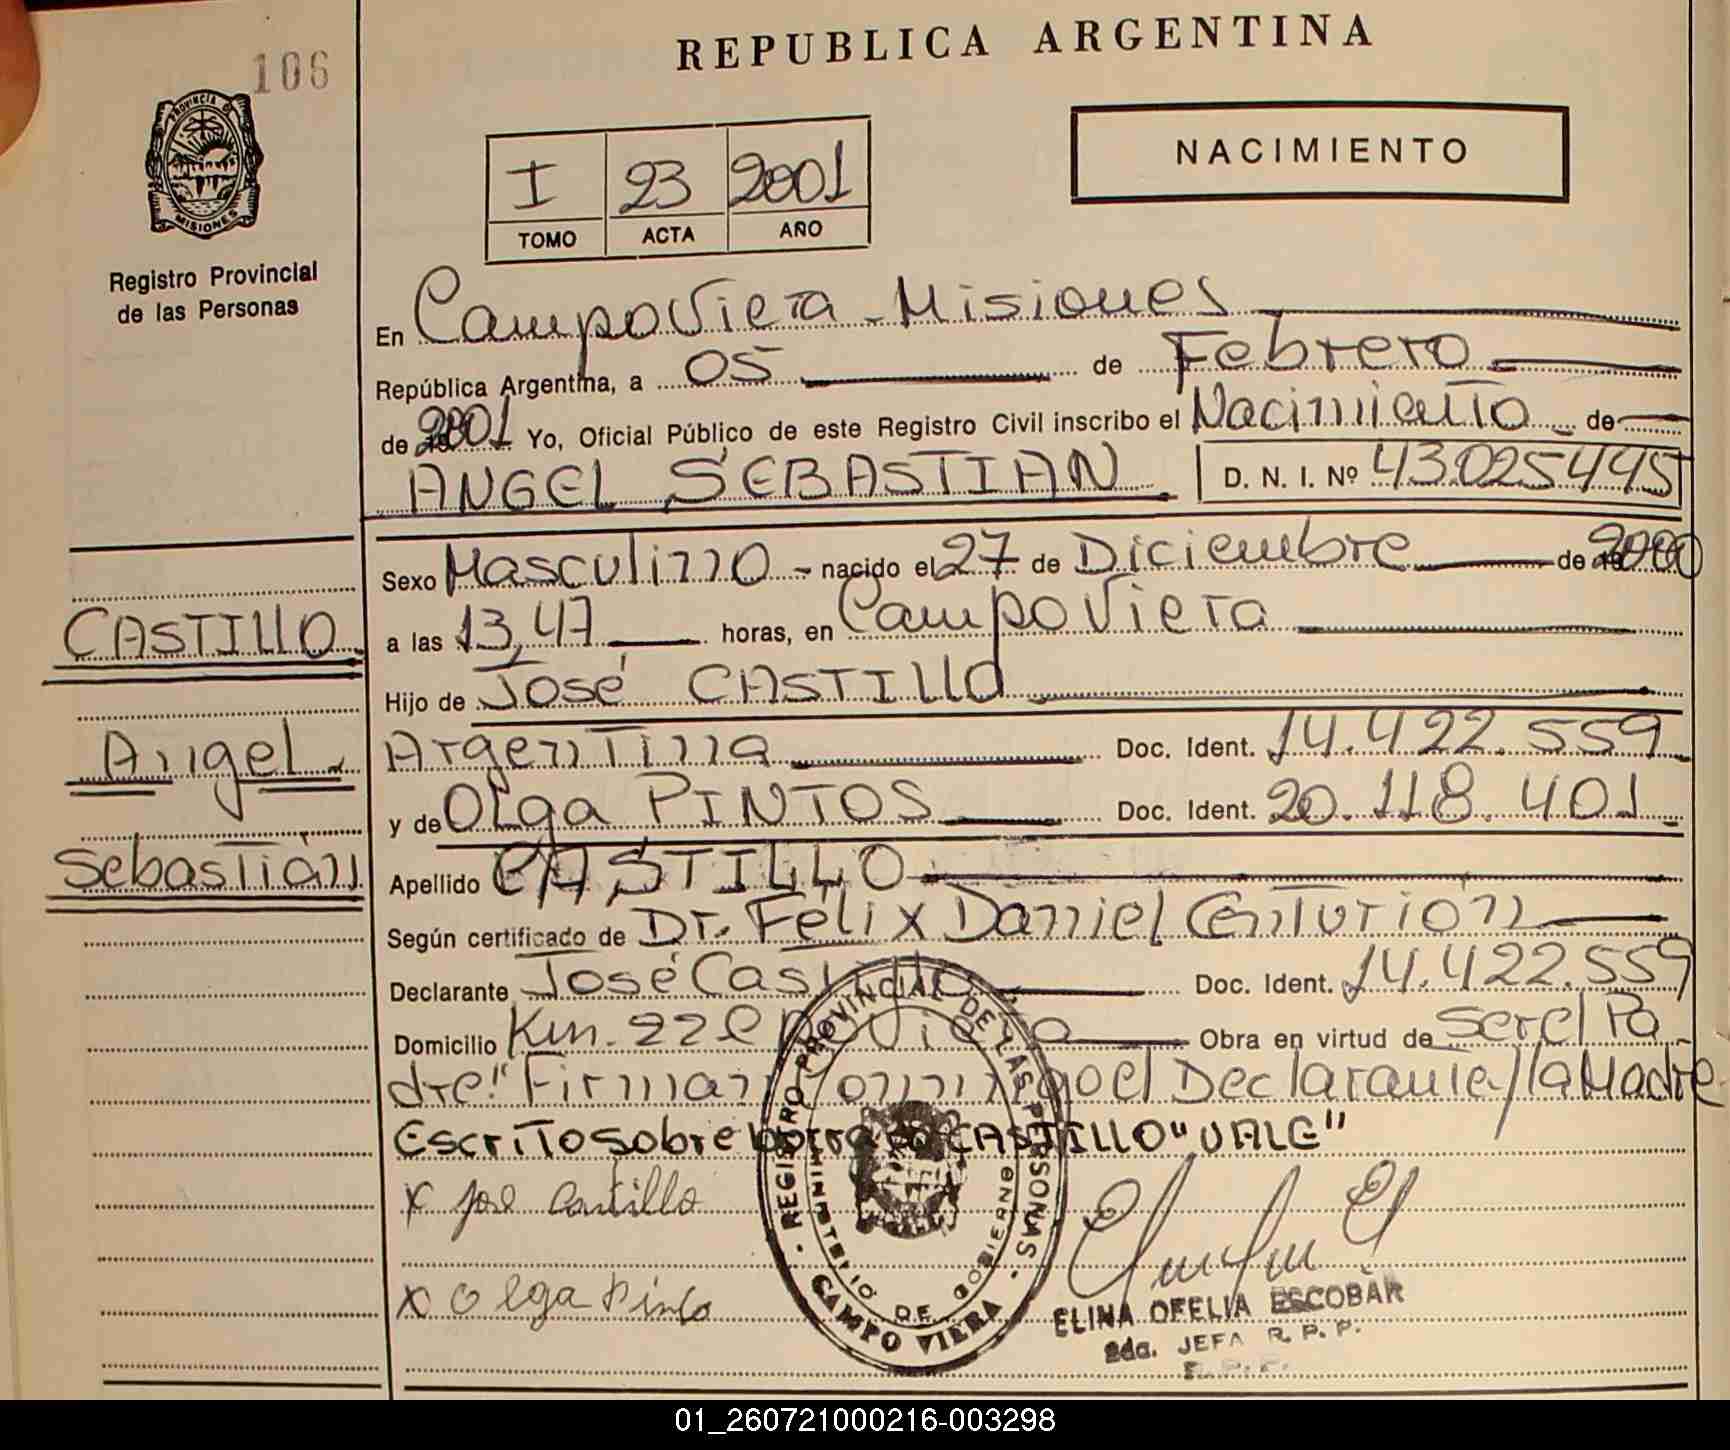 106
REPUBLICA ARGENTINA
PROVINCIA DE
MISIONES
Registro Provincial
de las Personas
NACIMIENTO
I 23 2001
TOMO ACTA AÑO
En Campo Viera - Misiones
República Argentina, a 05 de Febrero
de 2001 Yo, Oficial Público de este Registro Civil inscribo el Nacimiento de
ANGEL SEBASTIAN D. N. I. Nº 43.025.445
Sexo Masculino - nacido el 27 de Diciembre de 2000
CASTILLO
a las 13,47 horas, en Campo Viera
Hijo de José CASTILLO
Angel
Argentina Doc. Ident. 14.422.559
y de Olga PINTOS Doc. Ident. 20.118.401
Sebastián
Apellido CASTILLO
Según certificado de Dr. Félix Daniel Centurión
Declarante José Castillo Doc. Ident. 14.422.559
Domicilio Km. Viera Obra en virtud de ser el Pa
dre." Firman conmigo el Declarante/la Madre
Escrito sobre borrado CASTILLO "VALE"
x José Castillo
x Olga Pinto
REGISTRO PROVINCIAL DE LAS PERSONAS
MINISTERIO DE GOBIERNO
CAMPO VIERA
ELINA OFELIA ESCOBAR
2da. JEFA R. P. P.
R. P. P.
01_260721000216-003298